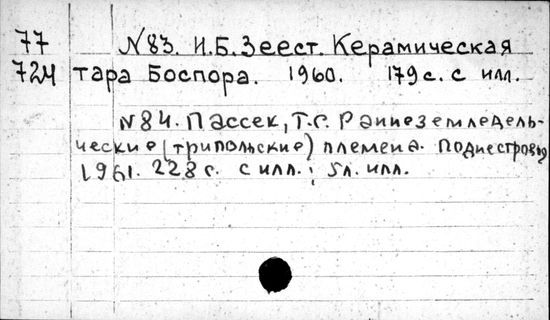 77 N83. И.Б. Зеест. Керамическая
724 тара Боспора. 1960. 179 с. с илл.
N84. Пассек, Т.С. Раннеземледель-
ческие (трипольские) племена. Поднестровья
1961. 228 с. с илл.; 5 л. илл.